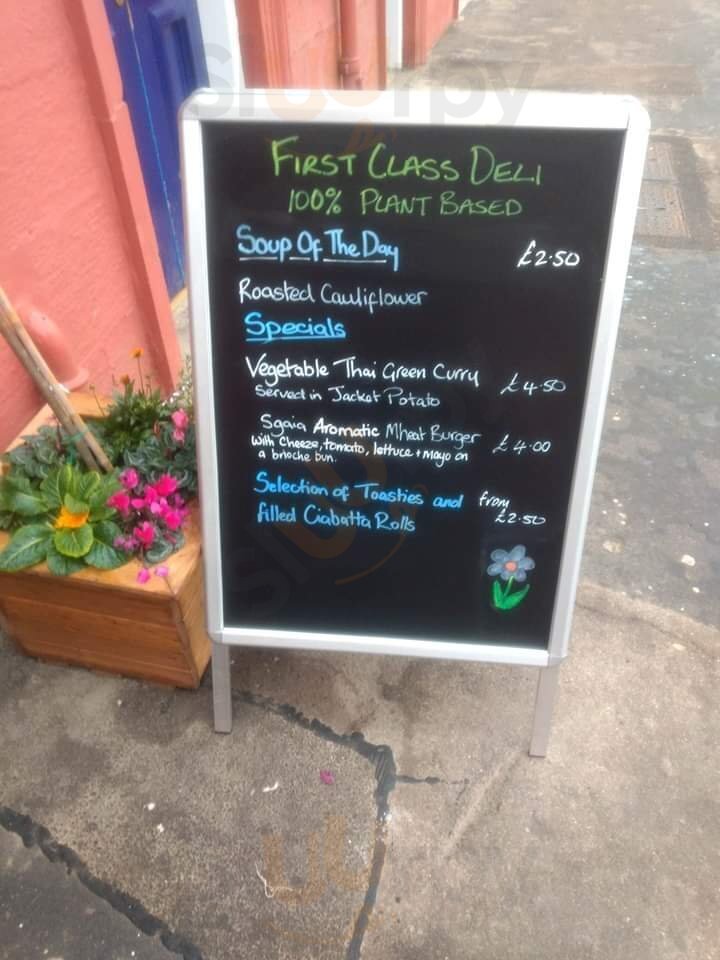 sluurpy
FIRST CLASS DELI
100% PLANT BASED
Soup Of The Day £2.50
Roasted Cauliflower
Specials
Vegetable Thai Green Curry £4.50
Served in Jacket Potato
Sgaia Aromatic Mheat Burger £4.00
With Cheeze, tomato, lettuce + mayo on
a brioche bun.
Selection of Toasties and from
filled Ciabatta Rolls £2.50